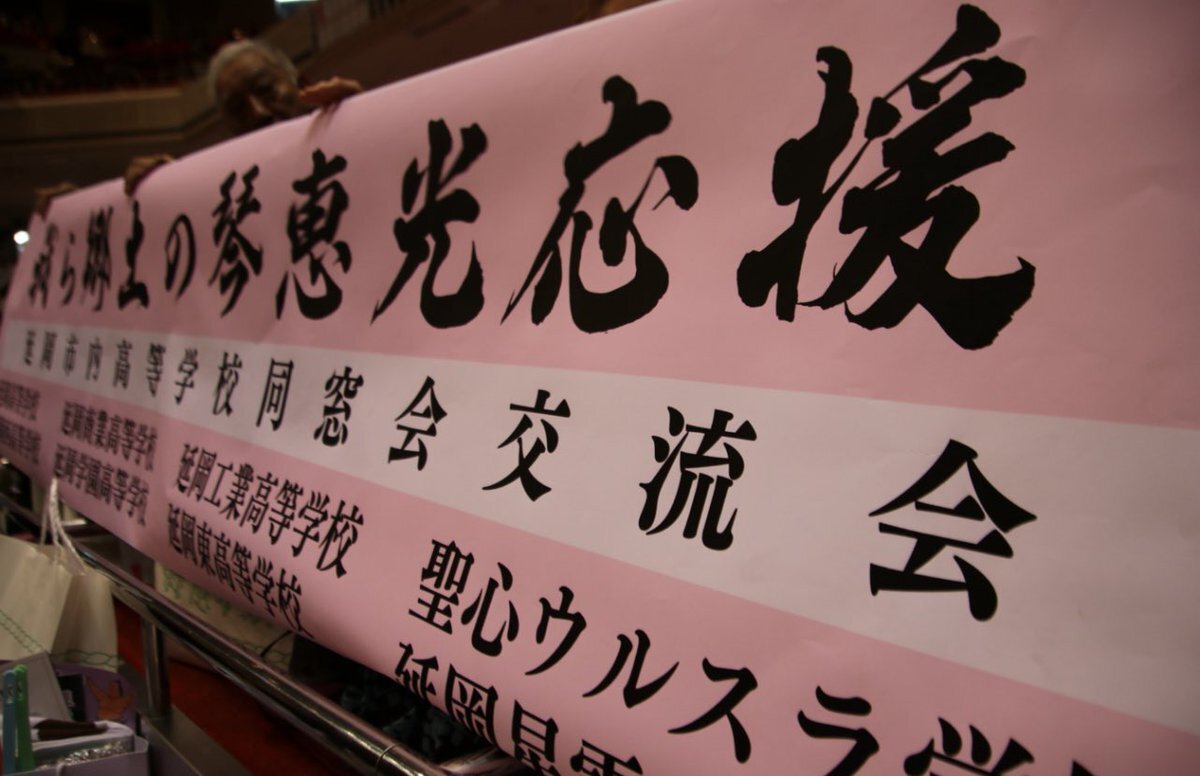 我ら郷土の琴恵光応援
延岡市内高等学校同窓会交流会
延岡商業高等学校 延岡工業高等学校 聖心ウルスラ学
延岡学園高等学校 延岡東高等学校 延岡星雲